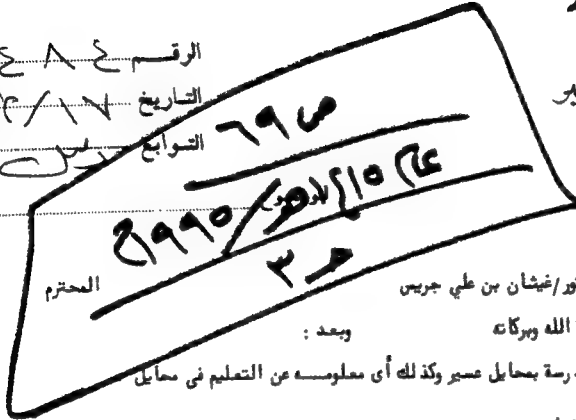 الرقم ٤٨٤
التاريخ ١٧/٢
التوابع
ص ٦٩
عام ١٤١٥هـ/١٩٩٥م
حـ ٣
المحترم
غيثان بن علي جريس
الله وبركاته
وبعد :
رسة بمحايل عسير وكذلك أى معلومـــه عن التعليم فى محايل